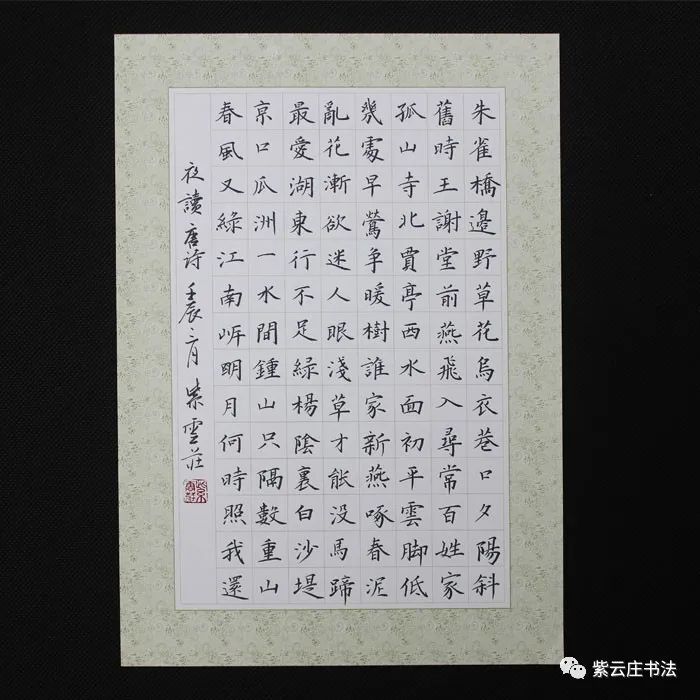 朱雀橋邊野草花烏衣巷口夕陽斜
舊時王謝堂前燕飛入尋常百姓家
孤山寺北賈亭西水面初平雲脚低
幾處早鶯争暖樹誰家新燕啄春泥
亂花漸欲迷人眼淺草才能没馬蹄
最愛湖東行不足綠楊陰裏白沙堤
京口瓜洲一水間鍾山只隔數重山
春風又綠江南岸明月何時照我還
夜讀唐詩 壬辰二月 紫雲莊
紫云庄书法